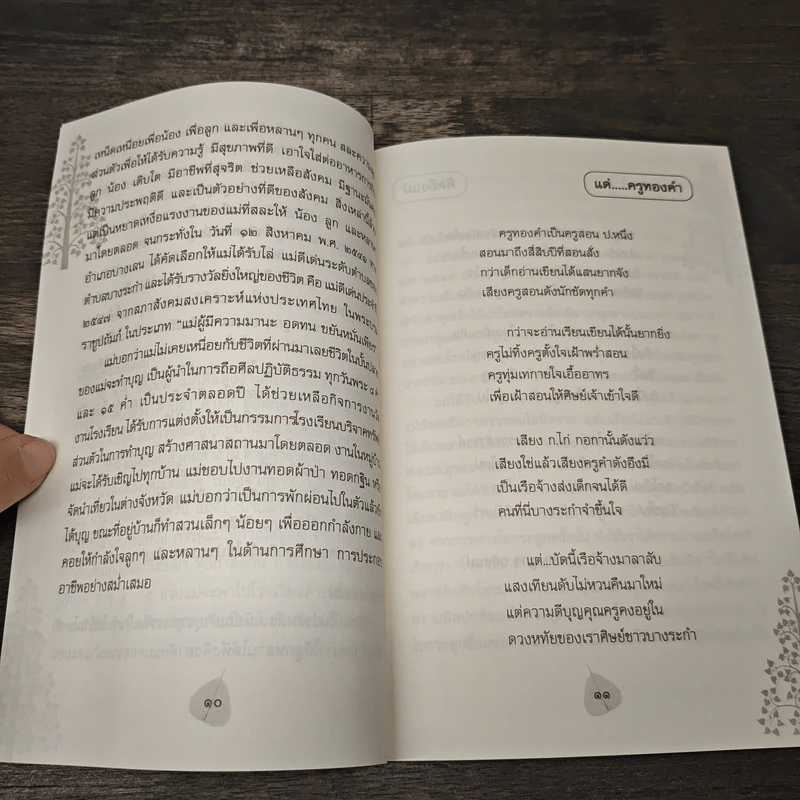 เหน็ดเหนื่อยเพื่อน้อง เพื่อลูก และเพื่อหลานๆ ทุกคน สละความ
ส่วนตัวเพื่อให้ได้รับความรู้ มีสุขภาพที่ดี เอาใจใส่ต่ออาหารการกิน
ลูก น้อง เติบโต มีอาชีพที่สุจริต ช่วยเหลือสังคม มีฐานะมั่นคง
มีความประพฤติดี และเป็นตัวอย่างที่ดีของสังคม สิ่งเหล่านี้
แต่เป็นหยาดเหงื่อแรงงานของแม่ที่สละให้ น้อง ลูก และหลาน
มาโดยตลอด จนกระทั่งใน วันที่ ๑๒ สิงหาคม พ.ศ. ๒๕๔๑
อำเภอบางเลน ได้คัดเลือกให้แม่ได้รับโล่ แม่ดีเด่นระดับตำบลของ
ตำบลบางระกำ และได้รับรางวัลยิ่งใหญ่ของชีวิต คือ แม่ดีเด่นประจำ
๒๕๔๗ จากสภาสังคมสงเคราะห์แห่งประเทศไทย ในพระบรม
ราชูปถัมภ์ ในประเภท "แม่ผู้มีความมานะ อดทน ขยันหมั่นเพียร"
แม่บอกว่าแม่ไม่เคยเหนื่อยกับชีวิตที่ผ่านมาเลยชีวิตในบั้นปลาย
ของแม่จะทำบุญ เป็นผู้นำในการถือศีลปฏิบัติธรรม ทุกวันพระ ๘ ค่ำ
และ ๑๕ ค่ำ เป็นประจำตลอดปี ได้ช่วยเหลือกิจการงานวัด
งานโรงเรียน ได้รับการแต่งตั้งให้เป็นกรรมการโรงเรียนบริจาคทรัพย์
ส่วนตัวในการทำบุญ สร้างศาสนาสถานมาโดยตลอด งานในหมู่บ้าน
แม่จะได้รับเชิญไปทุกบ้าน แม่ชอบไปงานทอดผ้าป่า ทอดกฐิน หรือ
จัดนำเที่ยวในต่างจังหวัด แม่บอกว่าเป็นการพักผ่อนไปในตัวแล้วยัง
ได้บุญ ขณะที่อยู่บ้านก็ทำสวนเล็กๆ น้อยๆ เพื่อออกกำลังกาย และ
คอยให้กำลังใจลูกๆ และหลานๆ ในด้านการศึกษา การประกอบ
อาชีพอย่างสม่ำเสมอ
๑๐
แด่.....ครูทองคำ
ครูทองคำเป็นครูสอน ป.หนึ่ง
สอนมาถึงสี่สิบปีที่สอนสั่ง
กว่าเด็กอ่านเขียนได้แสนยากจัง
เสียงครูสอนดังนักชัดทุกคำ
กว่าจะอ่านเรียนเขียนได้นั้นยากยิ่ง
ครูไม่ทิ้งครูตั้งใจเฝ้าพร่ำสอน
ครูทุ่มเทกายใจเอื้ออาทร
เพื่อเฝ้าสอนให้ศิษย์เจ้าเข้าใจดี
เสียง ก.ไก่ กอกานั้นดังแว่ว
เสียงใช่แล้วเสียงครูคำดังอึงมี่
เป็นเรือจ้างส่งเด็กจนได้ดี
คนที่นี่บางระกำจำขึ้นใจ
แต่...บัดนี้เรือจ้างมาลาลับ
แสงเทียนดับไม่หวนคืนมาใหม่
แต่ความดีบุญคุณครูคงอยู่ใน
ดวงหทัยของเราศิษย์ชาวบางระกำ
๑๑